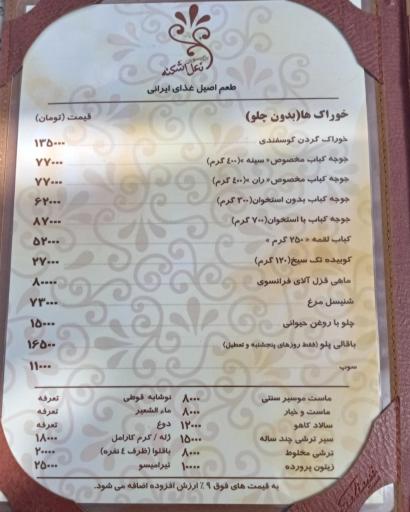 نعل اشکنه
طعم اصیل غذای ایرانی
خوراک ها(بدون چلو) قیمت (تومان)
خوراک گردن گوسفندی ۱۳۵۰۰۰
جوجه کباب مخصوص« سینه »(۴۰۰ گرم) ۷۷۰۰۰
جوجه کباب مخصوص« ران »(۴۰۰ گرم) ۷۷۰۰۰
جوجه کباب بدون استخوان(۳۰۰ گرم) ۶۲۰۰۰
جوجه کباب با استخوان(۷۰۰ گرم) ۸۷۰۰۰
کباب لقمه « ۲۵۰ گرم » ۵۲۰۰۰
کوبیده تک سیخ(۱۲۰ گرم) ۲۷۰۰۰
ماهی قزل آلای فرانسوی ۸۰۰۰۰
شنیسل مرغ ۷۳۰۰۰
چلو با روغن حیوانی ۱۵۰۰۰
باقالی پلو (فقط روزهای پنجشنبه و تعطیل) ۱۶۵۰۰
سوپ ۱۱۰۰۰
ماست موسیر سنتی ۸۰۰۰ نوشابه قوطی تعرفه
ماست و خیار ۸۰۰۰ ماء الشعیر تعرفه
سالاد کاهو ۱۲۰۰۰ دوغ تعرفه
سیر ترشی چند ساله ۱۵۰۰۰ ژله / کرم کارامل ۱۸۰۰۰
ترشی مخلوط ۸۰۰۰ باقلوا (ظرف ٤ نفره) ۲۰۰۰۰
زیتون پرورده ۱۰۰۰۰ تیرامیسو ۲۵۰۰۰
به قیمت های فوق ۹٪ ارزش افزوده اضافه می شود.